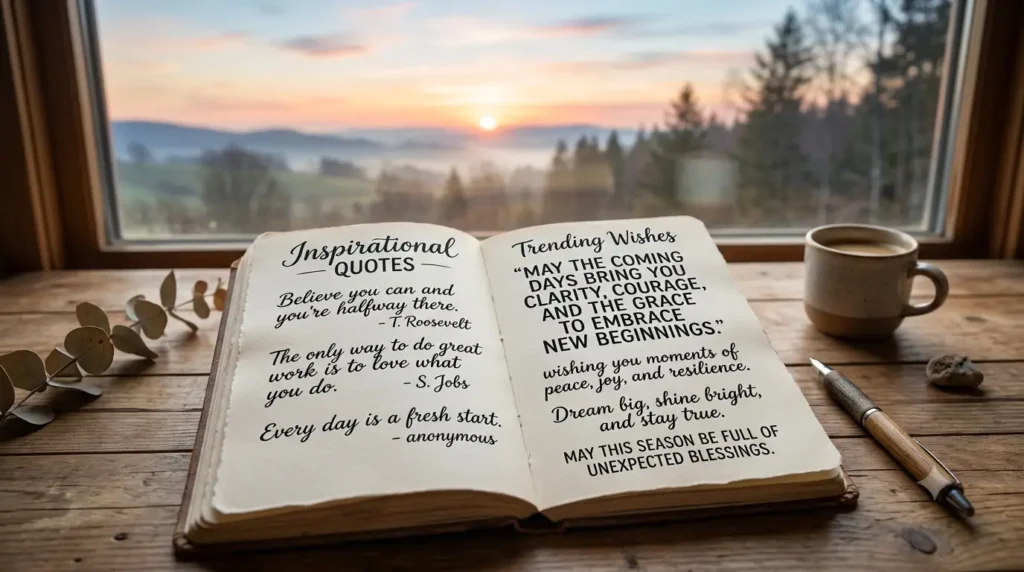 Inspirational
QUOTES
Believe you can and
you're halfway there.
- T. Roosevelt
The only way to do great
work is to love what
you do.
- S. Jobs
Every day is a fresh start.
- anonymous
Trending Wishes
"MAY THE COMING
DAYS BRING YOU
CLARITY, COURAGE,
AND THE GRACE
TO EMBRACE
NEW BEGINNINGS."
wishing you moments of
peace, joy, and resilience.
Dream big, shine bright,
and stay true.
MAY THIS SEASON BE FULL OF
UNEXPECTED BLESSINGS.